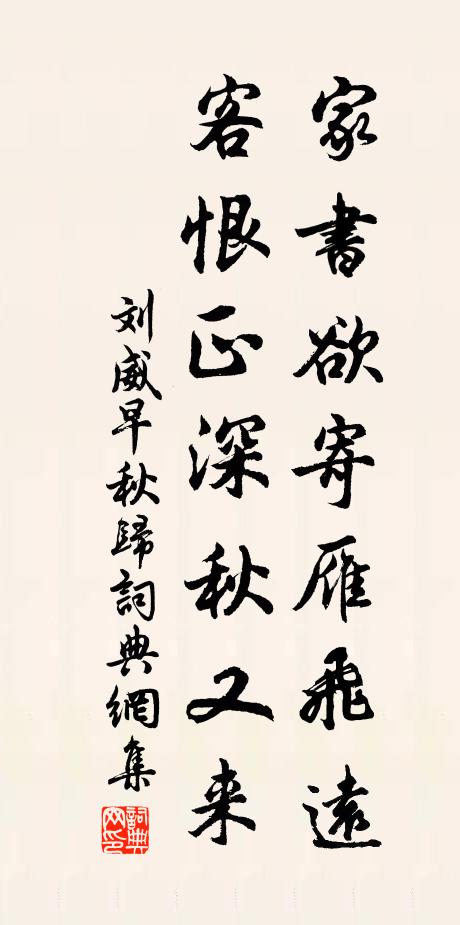 家書欲寄雁飛遠
客恨正深秋又来
刘威早秋歸詞典網集
詞典网印